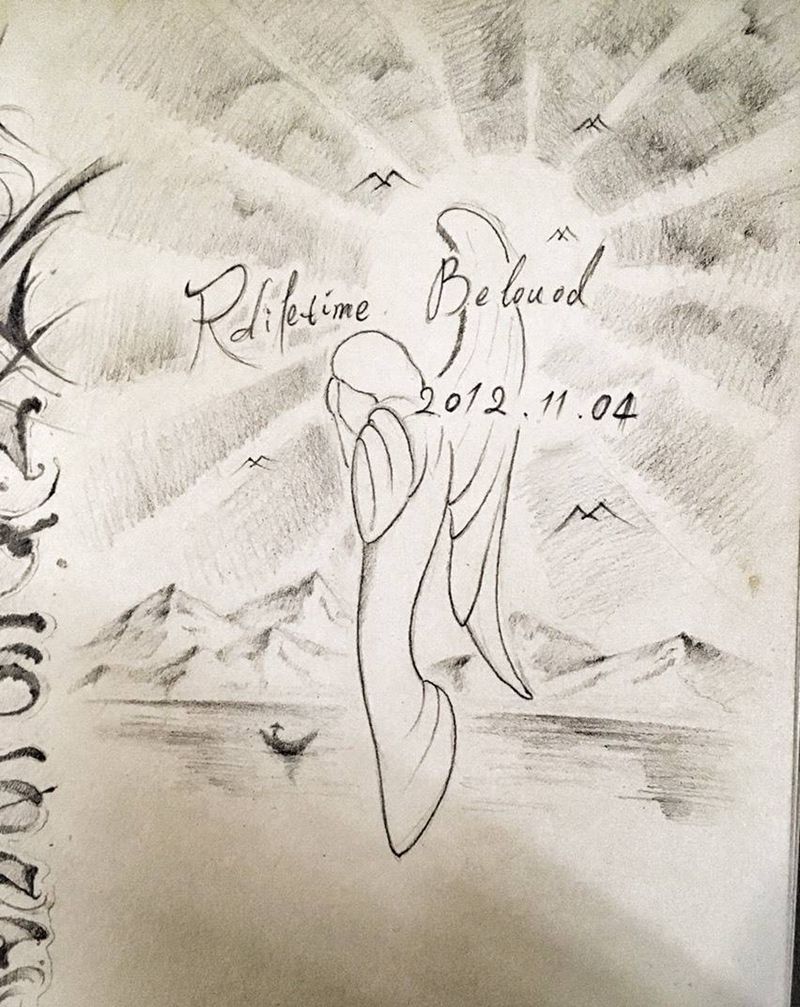 Rdifetime Belouod
2012.11.04